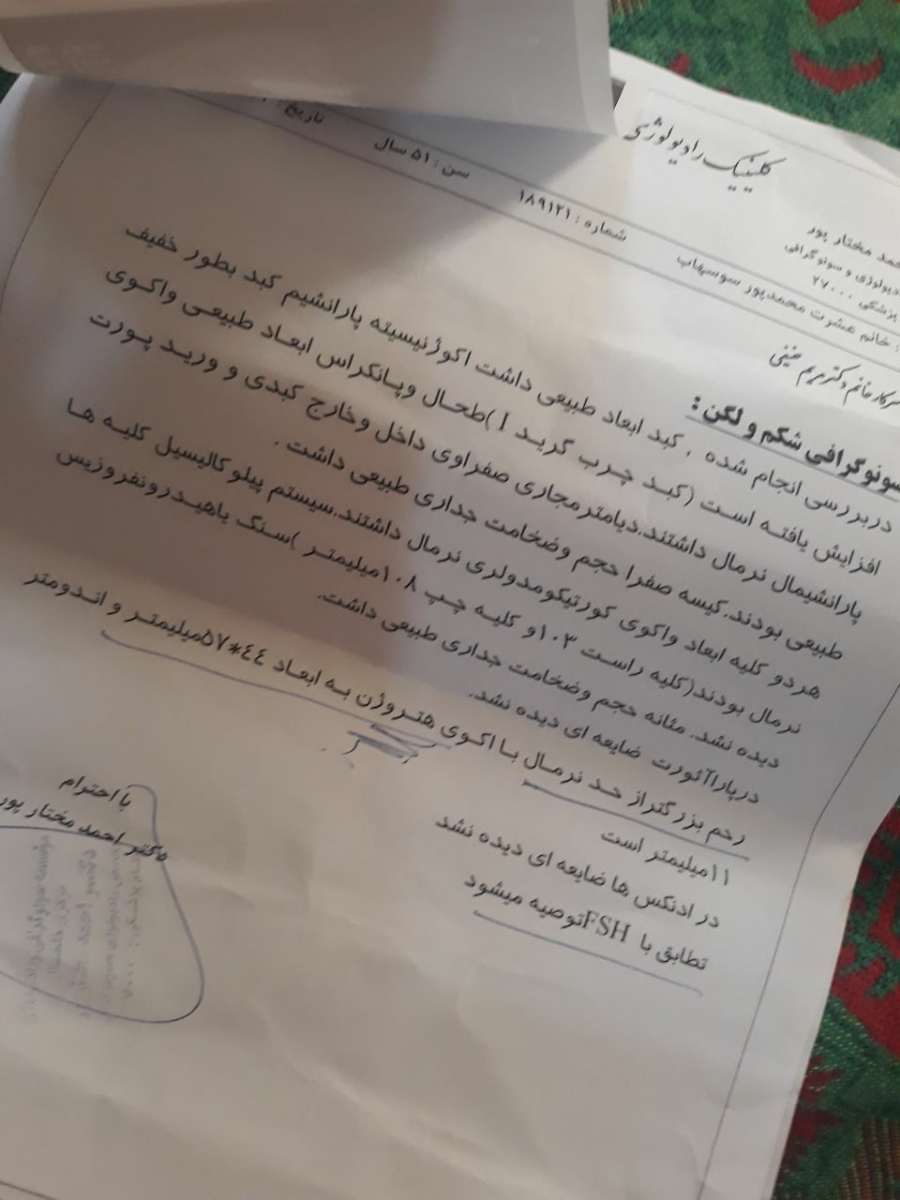 کلینیک رادیولوژی
حمد مختار پور
دیولوژی و سونوگرافی
پزشکی ۲۷۰۰۰
: خانم عشرت محمدپور سوسهاب
شماره : ۱۸۹۱۲۱
سن : ۵۱ سال
تاریخ :
سرکار خانم دکتر مریم خمینی
سونوگرافی شکم و لگن :
دربررسی انجام شده , کبد ابعاد طبیعی داشت اکوژنیسیته پارانشیم کبد بطور خفیف
افزایش یافته است (کبد چرب گرید I )طحال وپانکراس ابعاد طبیعی واکوی
پارانشیمال نرمال داشتند.دیامترمجاری صفراوی داخل وخارج کبدی و ورید پورت
طبیعی بودند.کیسه صفرا حجم وضخامت جداری طبیعی داشت .
هردو کلیه ابعاد واکوی کورتیکومدولری نرمال داشتند.سیستم پیلوکالیسیل کلیه ها
نرمال بودند(کلیه راست ۱۰۳و کلیه چپ ۱۰۸میلیمتر )سنگ یاهیدرونفروزیس
دیده نشد. مثانه حجم وضخامت جداری طبیعی داشت.
درپاراآئورت ضایعه ای دیده نشد.
رحم بزرگتراز حد نرمال با اکوی هتروژن به ابعاد ٤٤*۵۷میلیمتر و اندومتر
۱۱میلیمتر است
در ادنکس ها ضایعه ای دیده نشد
تطابق با FSHتوصیه میشود
با احترام
دکتر احمد مختار پور